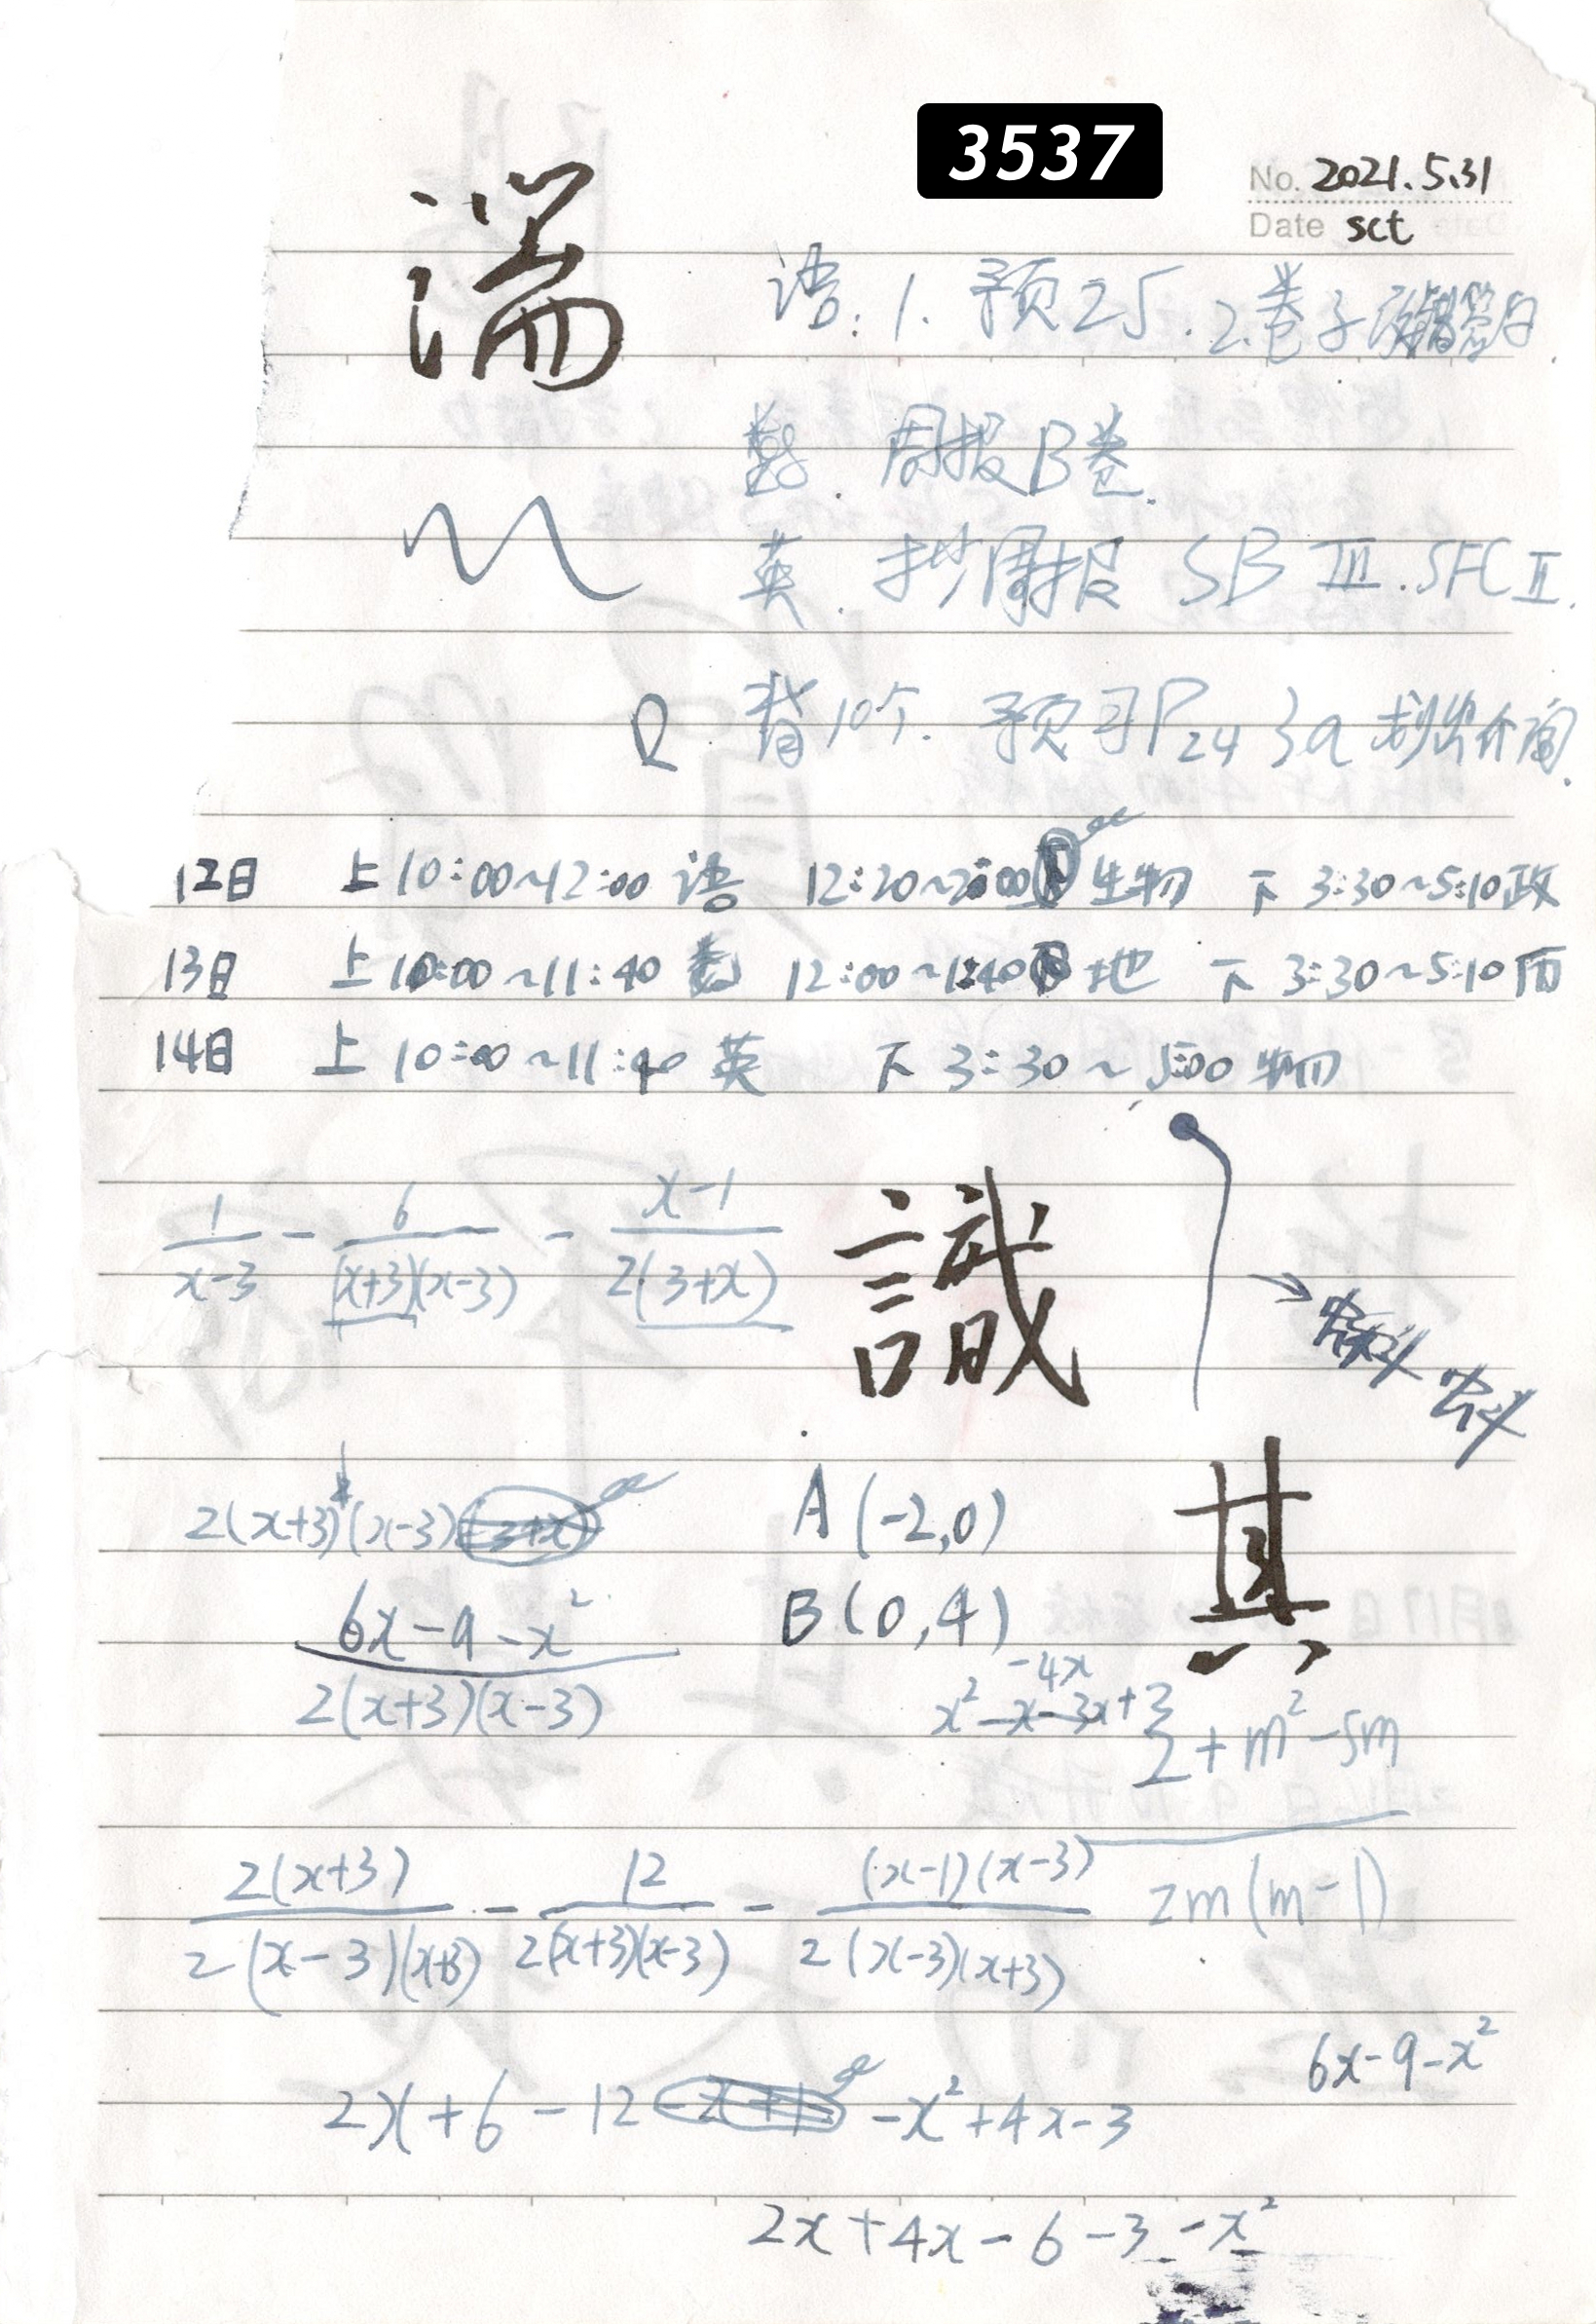 3537
No. 2021.5.31
Date sct
湍
语.1.预25.2.卷子
数.周报B卷.
英.抄周报 SB III.SFC II.
背10个.预习P24 3a 划出介词.
12日 上10:00~12:00 语 12:20~2:00 生物 下 3:30~5:10政
13日 上10:00~11:40 数 12:00~1:40 地 下 3:30~5:10历
14日 上10:00~11:40 英 下 3:30~5:00 物
1/(x-3) - 6/((x+3)(x-3)) - (x-1)/(2(3+x))
識
2(x+3)(x-3)
A(-2,0)
其
B(0,4)
(6x-9-x²)/(2(x+3)(x-3))
-4x
x²-x-3x+3
(2+m²-5m)/(2m(m-1))
2(x+3)/(2(x-3)(x+3)) - 12/(2(x+3)(x-3)) - (x-1)(x-3)/(2(x-3)(x+3))
6x-9-x²
2x+6-12-x²+4x-3
2x+4x-6-3-x²